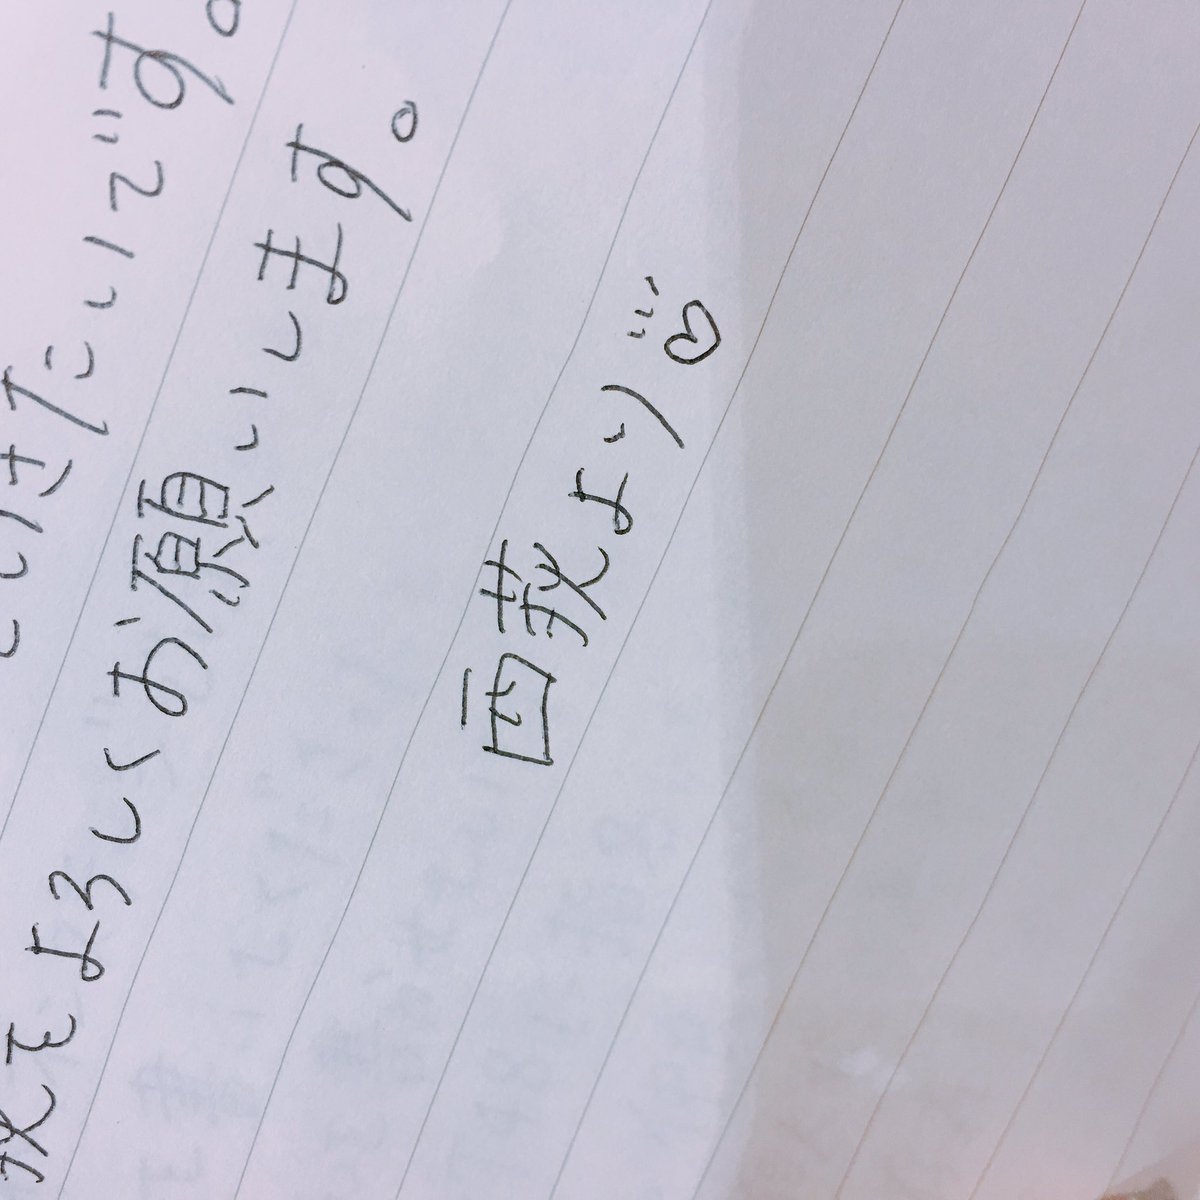 いけたいです。
をよろしくお願いします。
西萩より♡